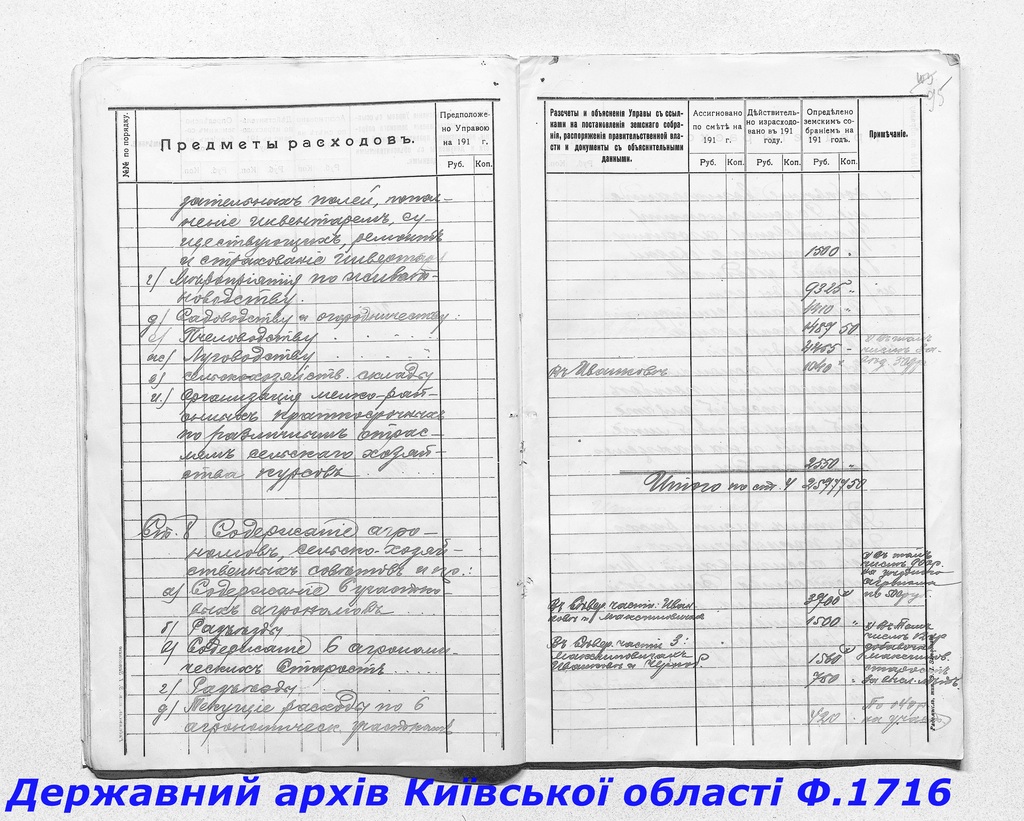 №№ по порядку.
Предметы расходовъ.
Предположе-
но Управою
на 191 г.
Руб. Коп.
дательныхъ полей, попол-
неніе инвентаремъ, су-
ществующихъ, ремонтъ
и страхованіе инвентаря
г) Мѣропріятія по живот-
новодству.
д) Садоводству и огородничеству:
е) Пчеловодству
ж) Луговодству
з) сельскохозяйств. склады
и) Организація мелко-рай-
онныхъ краткосрочныхъ
по различнымъ отрас-
лямъ сельскаго хозяй-
ства курсовъ
Ст. 8 Содержаніе агро-
номовъ, сельско-хозяй-
ственныхъ совѣтовъ и пр.:
а) Содержаніе 6 участко-
выхъ агрономовъ
б) Разъѣзды
в) Содержаніе 6 агрономи-
ческихъ Старостъ
г) Разъѣзды
д) Текущіе расходы по 6
агрономическ. участкамъ
95
Разсчеты и объясненія Управы съ ссыл-
ками на постановленія земскаго собра-
нія, распоряженія правительственной вла-
сти и документы съ объяснительными
данными.
Ассигновано
по смѣтѣ на
191 г.
Руб. Коп.
Дѣйствитель-
но израсходо-
вано въ 191
году.
Руб. Коп.
Опредѣлено
земскимъ со-
браніемъ на
191 годъ.
Руб. Коп.
Примѣчаніе.
1500 "
9325 "
4410 "
50
4465 "
въ Иванковѣ 1040 "
въ томъ
числѣ
2550 "
Итого по ст. 4 25977 50
въ томъ
числѣ
агронома
по
Въ Сѣвер. части: Иван-
ковъ и Максимовичи
3900
1500 "
Въ Сѣвер. части 3:
Максимовичахъ
Иванковъ и Черноб.
1560
750 "
въ томъ
числѣ
добавочн.
максимов.
420
По
на участ.
Державний архів Київської області Ф.1716